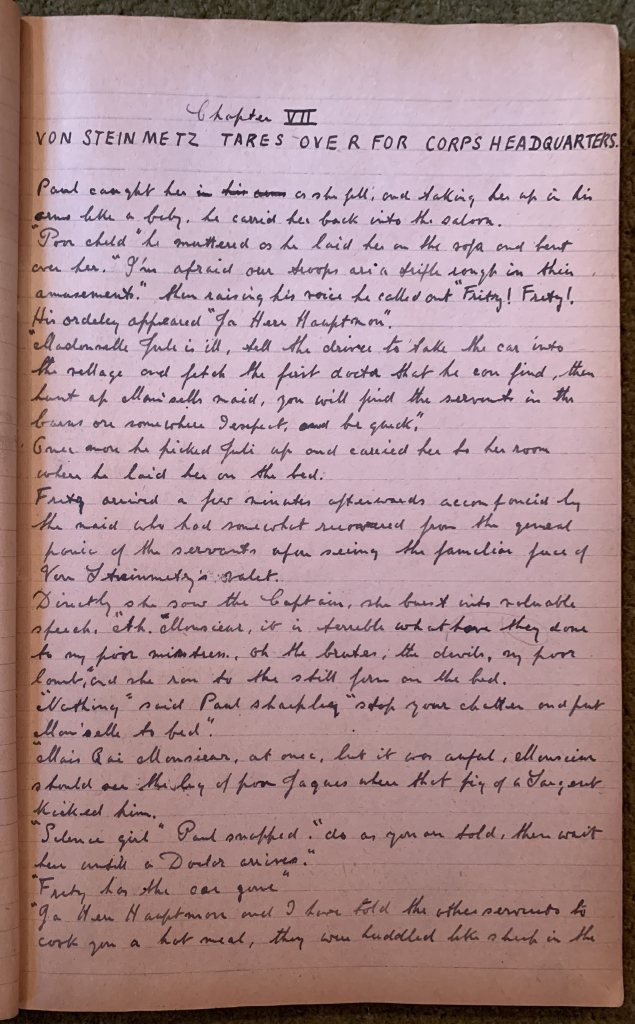 Chapter VII
VON STEINMETZ TARES OVER FOR CORPS HEADQUARTERS.
Paul caught her in his arms as she fell, and taking her up in his
arms like a baby, he carrid her back into the saloon.
"Poor child" he muttered as he laid her on the sofa and bent
over her. "I'm afraid our troops are a trifle rough in their
amusements." then raising his voice he called out "Fritz! Fritz!.
His ordeley appeared "Ja Herr Hauptmon".
"Madonnelle Juli is ill, tell the driver to take the car into
the village and fetch the first doctor that he can find, then
hunt up Mam'sells maid, you will find the servents in the
barns or somewhere I expect, and be quick."
Once more he picked Juli up and carried her to her room
where he laid her on the bed.
Fritz arrived a few minutes afterwards accompanied by
the maid who had somewhat recovered from the general
panic of the servents upon seeing the familiar face of
Von Steinmetz's valet.
Directly she saw the Captain, she burst into voluable
speech. "Ah. Monsieur, it is terrible what have they done
to my poor mistress, oh the brutes, the devils, my poor
lamb," and she ran to the still form on the bed.
"Nothing" said Paul sharpley "stop your chatter and put
Mam'selle to bed".
"Mais Oui Monsieur, at once, but it was awful, Monsieur
should see the leg of poor Jaques where that pig of a Sargent
kicked him.
"Silence girl" Paul snapped. "do as you are told, then wait
here untill a Doctor arrives."
"Fritz has the car gone"
"Ja Herr Hauptmon and I have told the other servents to
cook you a hot meal, they were huddled like sheep in the